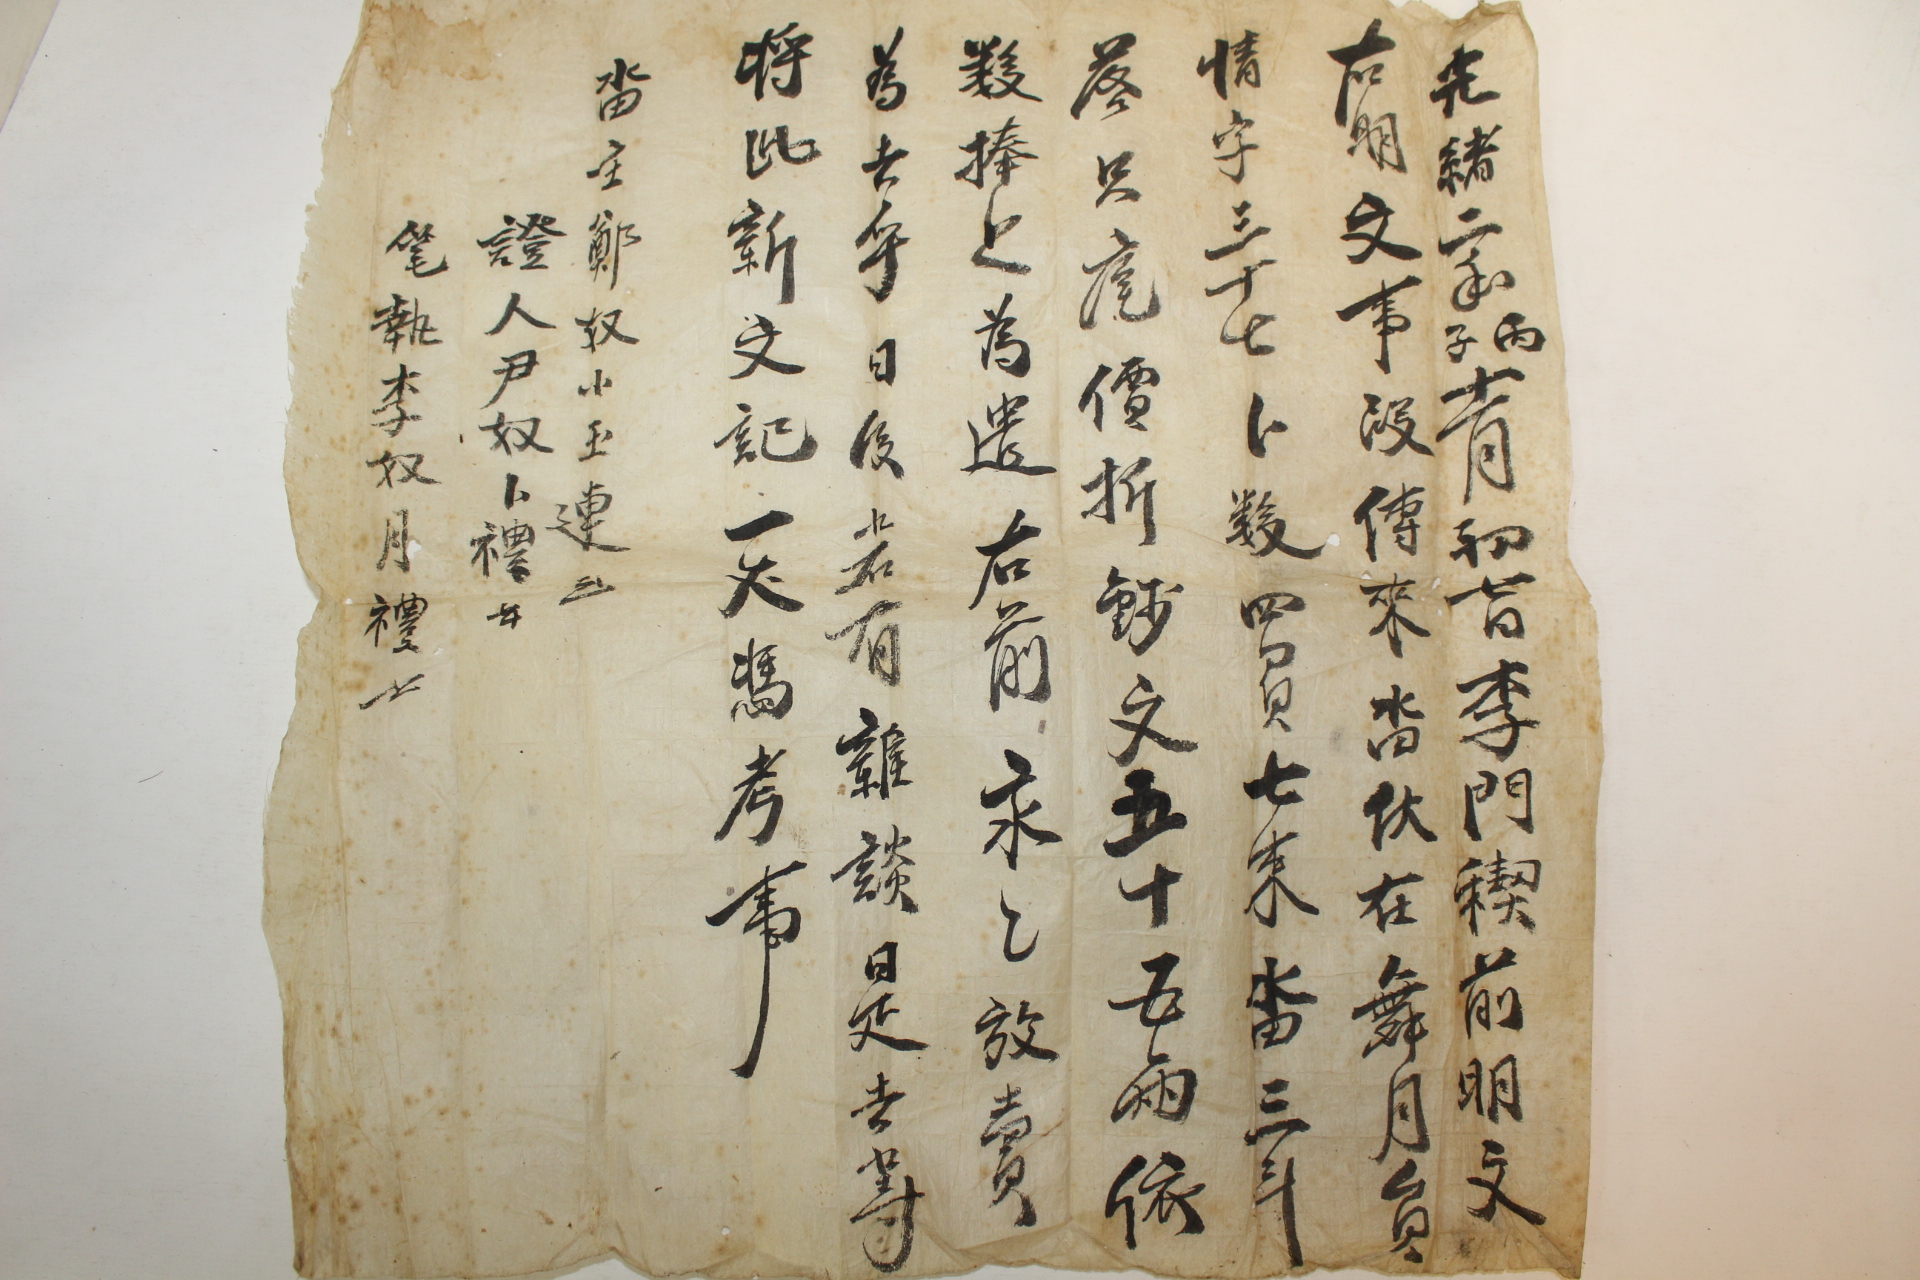 光緒二年丙子十二月初七日李門稧前明文
右明文事段傳來畓伏在舞月員
情字三十七卜數四負七束畓三斗
落只庫價折錢文五十五兩依
數捧上為遣右前永〻放賣
為去乎日後若有雜談是去等
將此新文記一夫憑考事
畓主鄭奴小玉連
證人尹奴卜禮
筆執李奴月禮